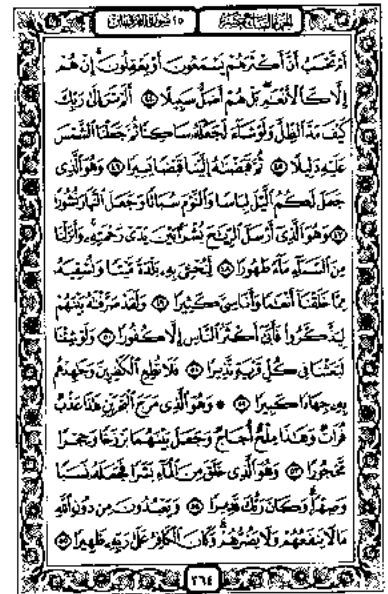 الجزء التاسع عشر ٢٥ سورة الفرقان
أَمْ تَحْسَبُ أَنَّ أَكْثَرَهُمْ يَسْمَعُونَ أَوْ يَعْقِلُونَ إِنْ هُمْ
إِلَّا كَالْأَنْعَٰمِ بَلْ هُمْ أَضَلُّ سَبِيلًا ٤٤ أَلَمْ تَرَ إِلَىٰ رَبِّكَ
كَيْفَ مَدَّ الظِّلَّ وَلَوْ شَآءَ لَجَعَلَهُ سَاكِنًا ثُمَّ جَعَلْنَا الشَّمْسَ
عَلَيْهِ دَلِيلًا ٤٥ ثُمَّ قَبَضْنَٰهُ إِلَيْنَا قَبْضًا يَسِيرًا ٤٦ وَهُوَ الَّذِى
جَعَلَ لَكُمُ الَّيْلَ لِبَاسًا وَالنَّوْمَ سُبَاتًا وَجَعَلَ النَّهَارَ نُشُورًا
٤٧ وَهُوَ الَّذِىٓ أَرْسَلَ الرِّيَٰحَ بُشْرًا بَيْنَ يَدَىْ رَحْمَتِهِۦ وَأَنزَلْنَا
مِنَ السَّمَآءِ مَآءً طَهُورًا ٤٨ لِّنُحْـِۧىَ بِهِۦ بَلْدَةً مَّيْتًا وَنُسْقِيَهُۥ
مِمَّا خَلَقْنَآ أَنْعَٰمًا وَأَنَاسِىَّ كَثِيرًا ٤٩ وَلَقَدْ صَرَّفْنَٰهُ بَيْنَهُمْ
لِيَذَّكَّرُوا۟ فَأَبَىٰٓ أَكْثَرُ النَّاسِ إِلَّا كُفُورًا ٥٠ وَلَوْ شِئْنَا
لَبَعَثْنَا فِى كُلِّ قَرْيَةٍ نَّذِيرًا ٥١ فَلَا تُطِعِ الْكَٰفِرِينَ وَجَٰهِدْهُم
بِهِۦ جِهَادًا كَبِيرًا ٥٢ ۞ وَهُوَ الَّذِى مَرَجَ الْبَحْرَيْنِ هَٰذَا عَذْبٌ
فُرَاتٌ وَهَٰذَا مِلْحٌ أُجَاجٌ وَجَعَلَ بَيْنَهُمَا بَرْزَخًا وَحِجْرًا
مَّحْجُورًا ٥٣ وَهُوَ الَّذِى خَلَقَ مِنَ الْمَآءِ بَشَرًا فَجَعَلَهُۥ نَسَبًا
وَصِهْرًا وَكَانَ رَبُّكَ قَدِيرًا ٥٤ وَيَعْبُدُونَ مِن دُونِ اللَّهِ
مَا لَا يَنفَعُهُمْ وَلَا يَضُرُّهُمْ وَكَانَ الْكَافِرُ عَلَىٰ رَبِّهِۦ ظَهِيرًا ٥٥
٣٦٤